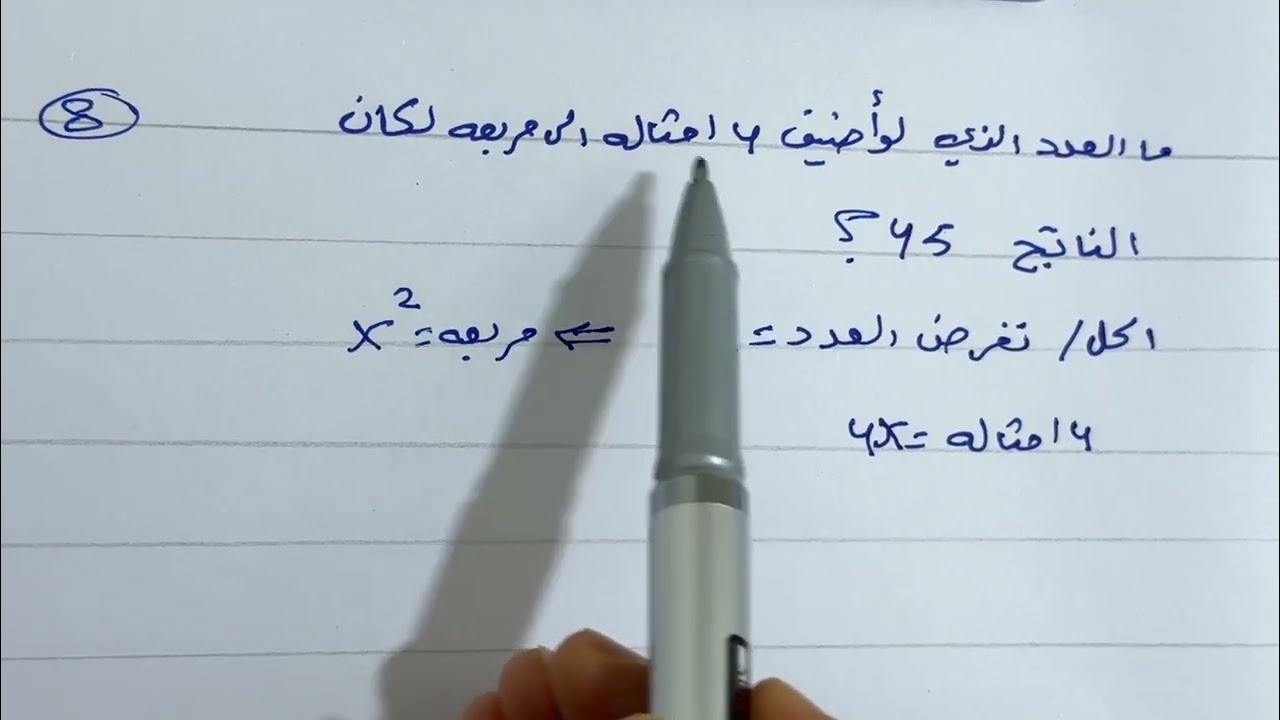 8 ما العدد الذي لو أضيف 4 امثاله الى مربعه لكان
الناتج 45 ؟
الحل/ نفرض العدد = ⇐ مربعه = x²
4 امثاله = 4x